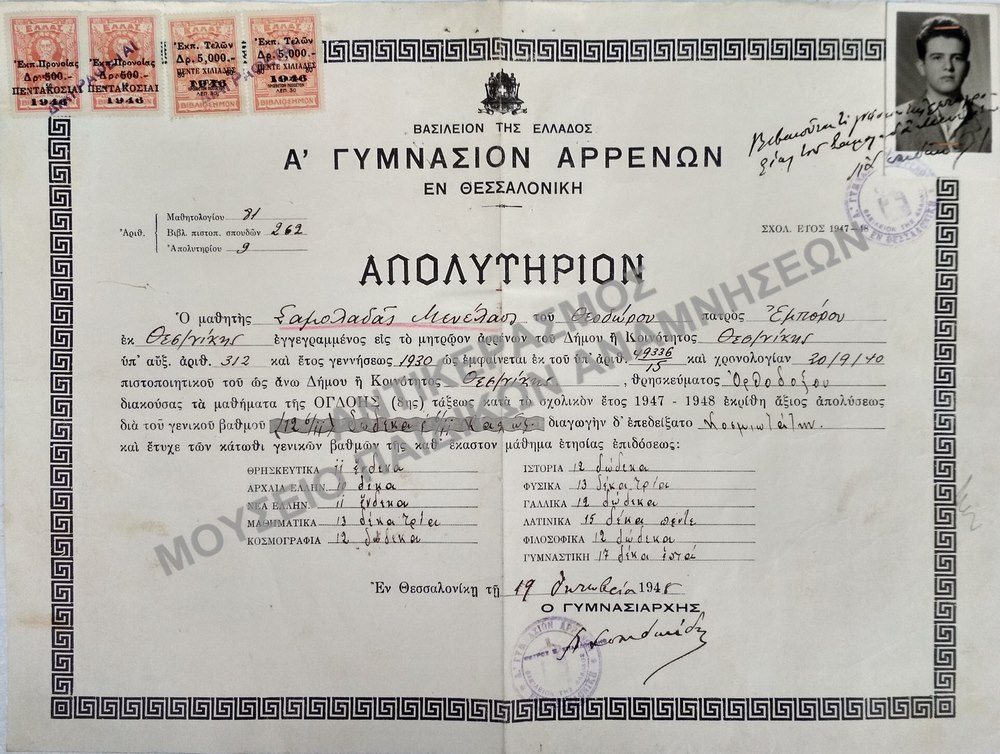 ΕΛΛΑΣ ΕΛΛΑΣ
Ἐκπ. Προνοίας Ἐκπ. Προνοίας Ἐκπ. Τελῶν Ἐκπ. Τελῶν
Δρ. 500.- Δρ. 500.- Δρ. 5,000.- Δρ. 5,000.-
ΠΕΝΤΑΚΟΣΙΑΙ ΠΕΝΤΑΚΟΣΙΑΙ ΠΕΝΤΕ ΧΙΛΙΑΔΕΣ ΠΕΝΤΕ ΧΙΛΙΑΔΕΣ
1946 1946 1946 1946
ΒΙΒΛΙΟΣΗΜΟΝ ΒΙΒΛΙΟΣΗΜΟΝ
ΒΑΣΙΛΕΙΟΝ ΤΗΣ ΕΛΛΑΔΟΣ
Α' ΓΥΜΝΑΣΙΟΝ ΑΡΡΕΝΩΝ
ΕΝ ΘΕΣΣΑΛΟΝΙΚΗ
Βεβαιοῦται
Μαθητολογίου 81
Ἀριθ. Βιβλ. πιστοπ. σπουδῶν 262
Ἀπολυτηρίου 9
ΣΧΟΛ. ΕΤΟΣ 1947-48
ΑΠΟΛΥΤΗΡΙΟΝ
Ὁ μαθητὴς Σαμολαδᾶς Μενέλαος τοῦ Θεοδώρου πατρὸς Ἐμπόρου
ἐκ Θεσ/νίκης ἐγγεγραμμένος εἰς τὸ μητρῷον ἀρρένων τοῦ Δήμου ἢ Κοινότητος Θεσ/νίκης
ὑπ' αὔξ. ἀριθ. 312 καὶ ἔτος γεννήσεως 1930 ὡς ἐμφαίνεται ἐκ τοῦ ὑπ' ἀριθ. 49336/15 καὶ χρονολογίαν 30/9/40
πιστοποιητικοῦ τοῦ ὡς ἄνω Δήμου ἢ Κοινότητος Θεσ/νίκης, θρησκεύματος Ὀρθοδόξου
διακούσας τὰ μαθήματα τῆς ΟΓΔΟΗΣ (8ης) τάξεως κατὰ τὸ σχολικὸν ἔτος 1947 - 1948 ἐκρίθη ἄξιος ἀπολύσεως
διὰ τοῦ γενικοῦ βαθμοῦ δώδεκα Καλῶς διαγωγὴν δ' ἐπεδείξατο Κοσμιωτάτην
καὶ ἔτυχε τῶν κάτωθι γενικῶν βαθμῶν τῆς καθ' ἕκαστον μάθημα ἐτησίας ἐπιδόσεως:
ΘΡΗΣΚΕΥΤΙΚΑ 11 ἕνδεκα
ΑΡΧΑΙΑ ΕΛΛΗΝ. δέκα
ΝΕΑ ΕΛΛΗΝ. 11 ἕνδεκα
ΜΑΘΗΜΑΤΙΚΑ 13 δέκα τρία
ΚΟΣΜΟΓΡΑΦΙΑ 12 δώδεκα
ΙΣΤΟΡΙΑ 12 δώδεκα
ΦΥΣΙΚΑ 13 δέκα τρία
ΓΑΛΛΙΚΑ 12 δώδεκα
ΛΑΤΙΝΙΚΑ 15 δέκα πέντε
ΦΙΛΟΣΟΦΙΚΑ 12 δώδεκα
ΓΥΜΝΑΣΤΙΚΗ 17 δέκα ἑπτά
Ἐν Θεσσαλονίκῃ τῇ 19 Ὀκτωβρίου 1948
Ο ΓΥΜΝΑΣΙΑΡΧΗΣ
ΑΝΤΙΚΕΡΑΣΜΟΣ
ΜΟΥΣΕΙΟ ΠΑΙΔΙΚΩΝ ΑΝΑΜΝΗΣΕΩΝ